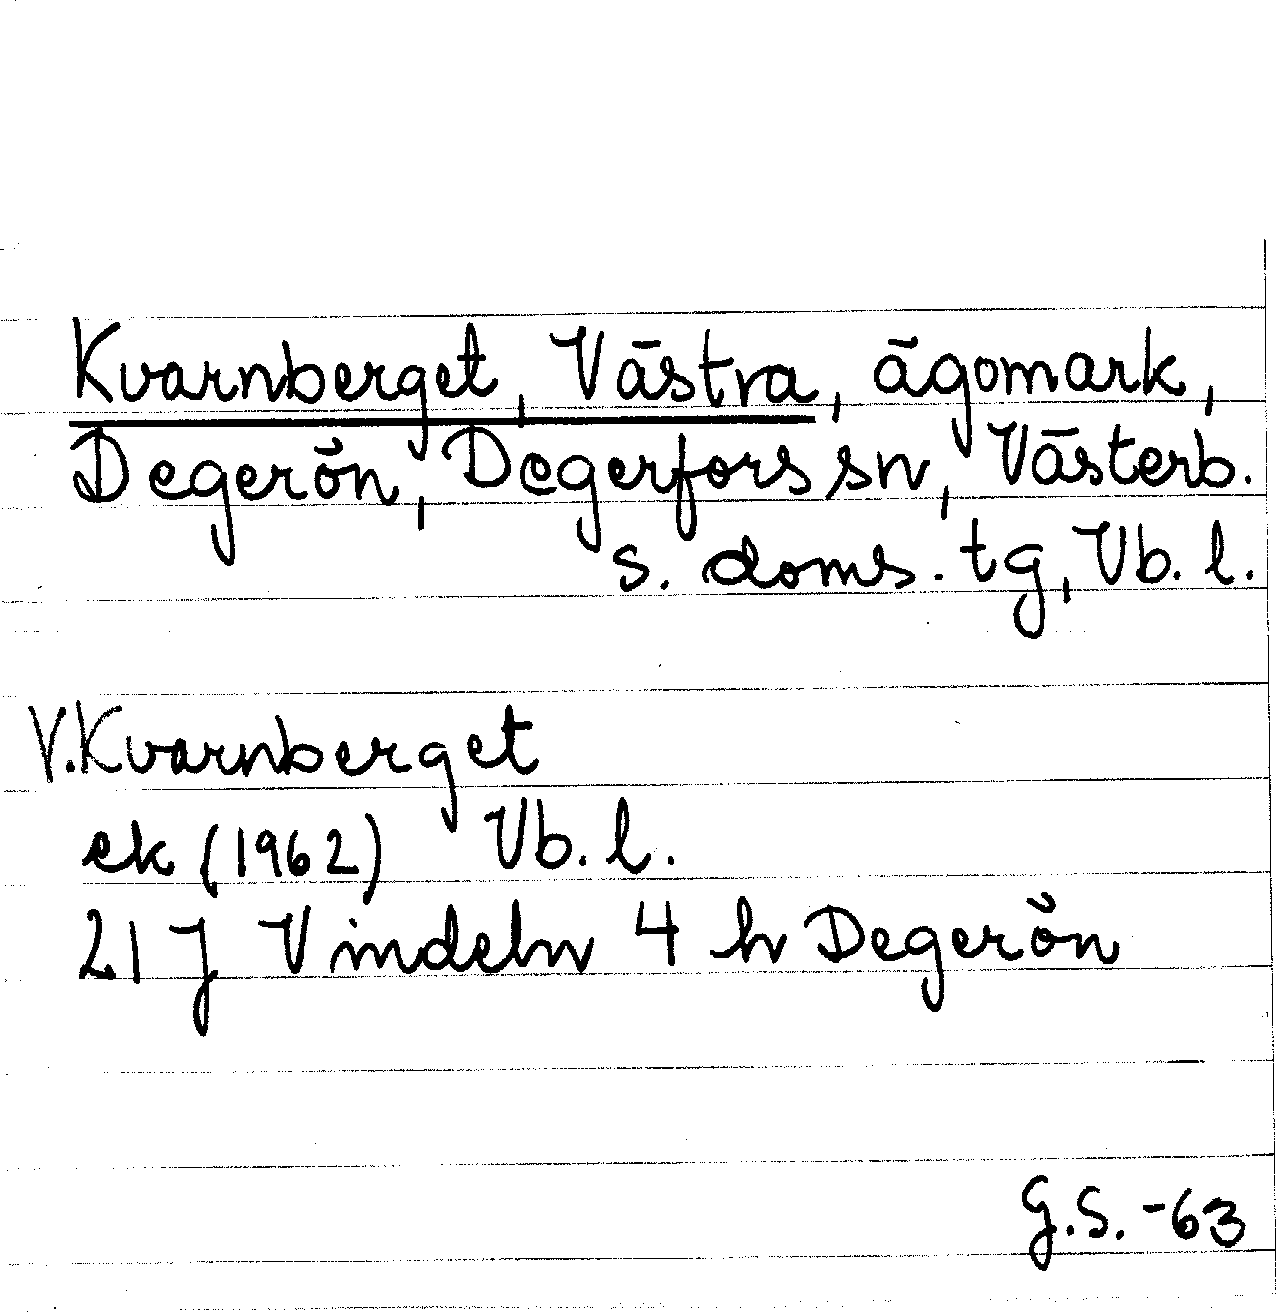 Kvarnberget, Västra, ägomark,
Degerön, Degerfors sn, Västerb.
s. doms. tg, Vb. l.
V. Kvarnberget
ek (1962) Vb. l.
21 J Vindeln 4 h Degerön
G.S. -63